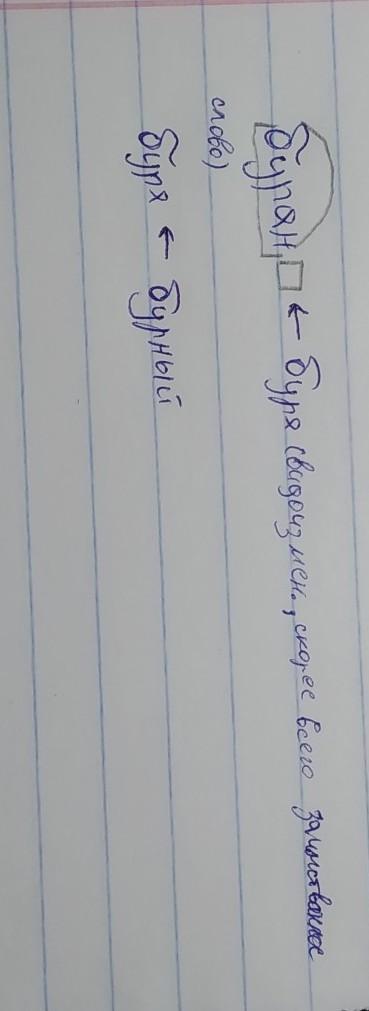 буран ← буря (видоизмен., скорее всего заимствованное
слово)
буря ← бурный